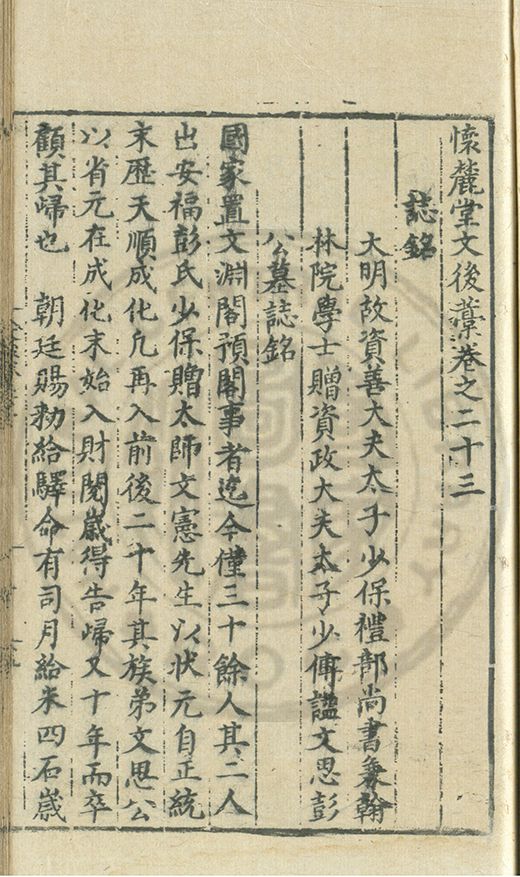 懷麓堂文後藁卷之二十三
誌銘
大明故資善大夫太子少保禮部尚書兼翰
林院學士贈資政大夫太子少傅諡文思彭
公墓誌銘
國家置文淵閣預閣事者迄今僅三十餘人其二人
出安福彭氏少保贈太師文憲先生以狀元自正統
末歷天順成化凡再入前後二十年其族弟文思公
以省元在成化末始入財閱歲得告歸又十年而卒
顧其歸也 朝廷賜勑給驛命有司月給米四石歲